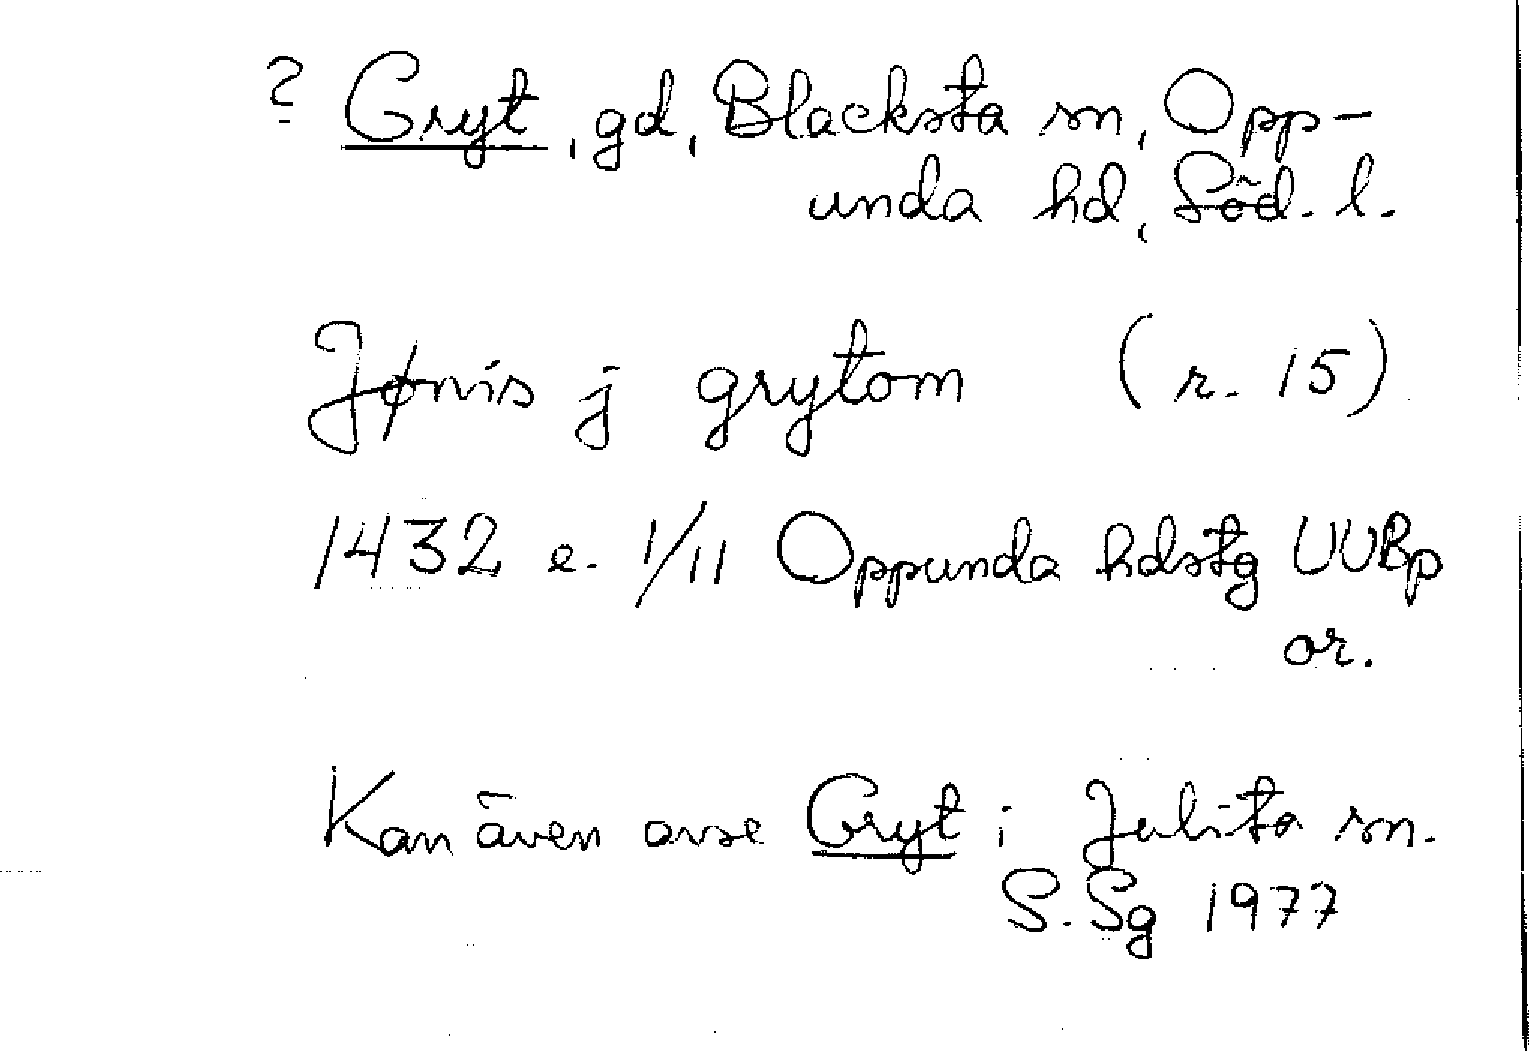 ? Gryt, gd, Blacksta sn, Opp-
unda hd, Söd. l.
Jønis j grytom (r. 15)
1432 e. 1/11 Oppunda hdstg UUBp
or.
Kan även avse Gryt i Julita sn.
S. Sg 1977